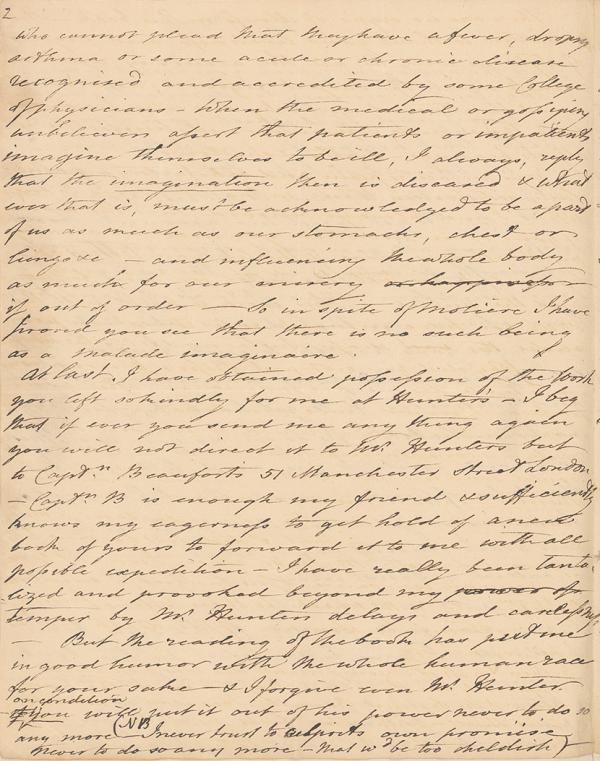 2
who cannot plead that they have a fever, dropsy
asthma or some acute or chronic disease
recognised and accredited by some College
of physicians – When the medical or gossiping
unbelievers assert that patients or impatients
imagine themselves to be ill, I always, reply
that the imagination then is diseased & what
ever that is, must be acknowledged to be a part
of us as much as our stomachs, chest or
lungs &c – and influencing the whole body
as much for our misery or happiness
if out of order — So in spite of Moliere I have
proved you see that there is no such being
as a malade imaginaire.
At last, I have obtained possession of the work
you left so kindly for me at Hunter's – I beg
that if ever you send me any thing again
you will not direct it to Mr. Hunters but
to Captn Beauforts 51 Manchester Street London
– Captn B is enough my friend & sufficiently
knows my eagerness to get hold of a new
book of yours to forward it to me with all
possible expedition – I have really been tanta-
lized and provoked beyond my power of
temper by Mr Hunters delays and carelessness
– But the reading of the book has put me
in good humor with the whole human race
for your sake – & I forgive even Mr. Hunter
on condition
you will put it out of his power never to do so
any more (NB I never trust to culprits own promise
never to do so any more – that wd be too childish)